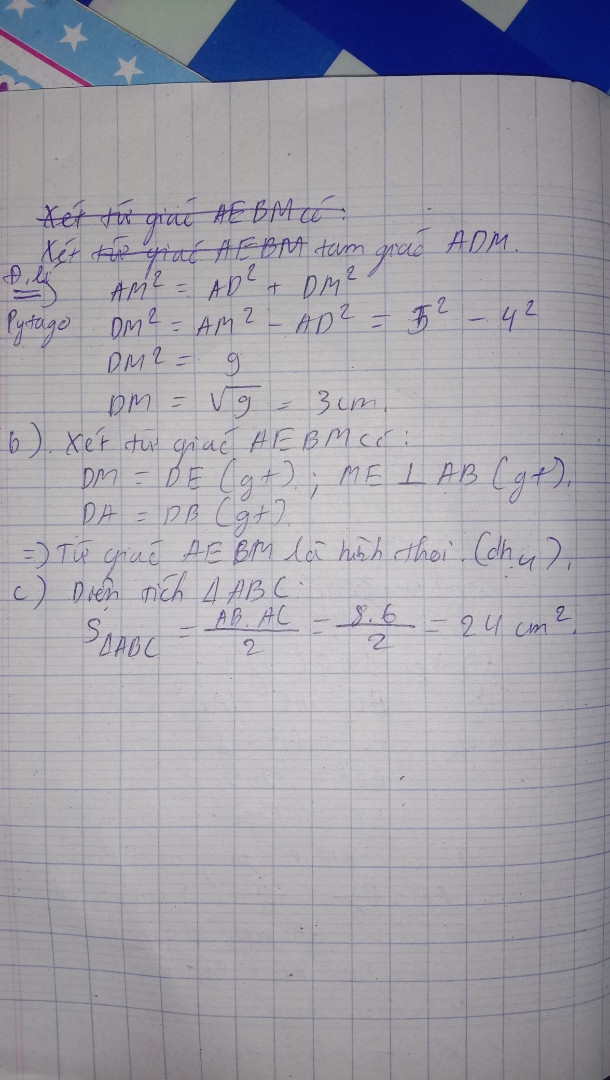 Xét tứ giác AEBM có:
Xét tứ giác AEBM tam giác ADM.
Đ.lý AM² = AD² + DM²
Pytago DM² = AM² - AD² = 5² - 4²
DM² = 9
DM = √9 = 3cm.
b). Xét tứ giác AEBM có:
DM = DE (gt) ; ME ⊥ AB (gt).
DA = DB (gt)
=) Tứ giác AEBM là hình thoi. (dh4).
c) Diện tích ΔABC:
S ΔABC = AB.AC/2 = 8.6/2 = 24 cm².